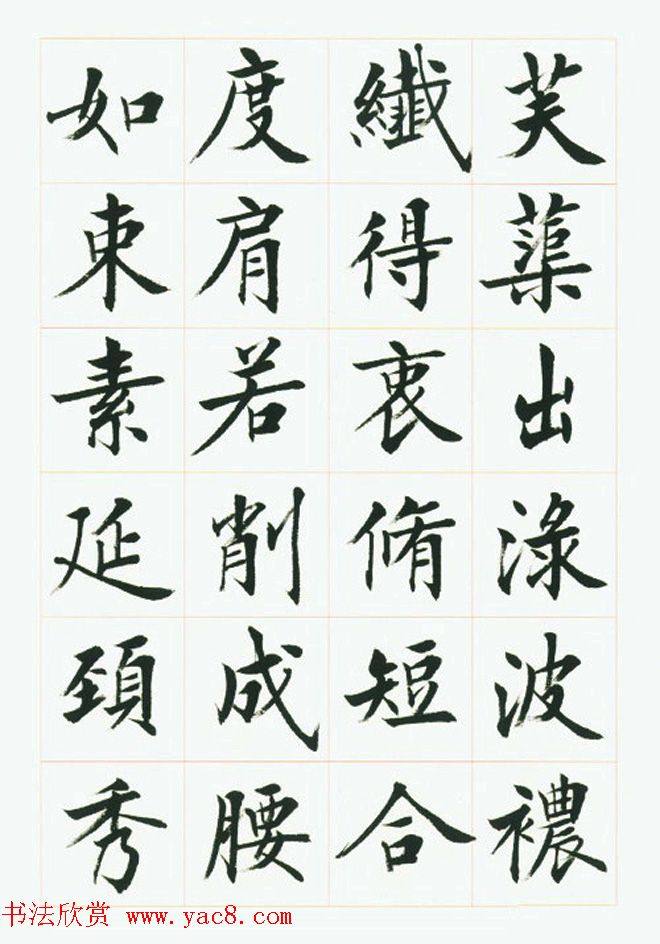 芙蕖出淥波襛
纖得衷脩短合
度肩若削成腰
如束素延頸秀
书法欣赏 www.yac8.com